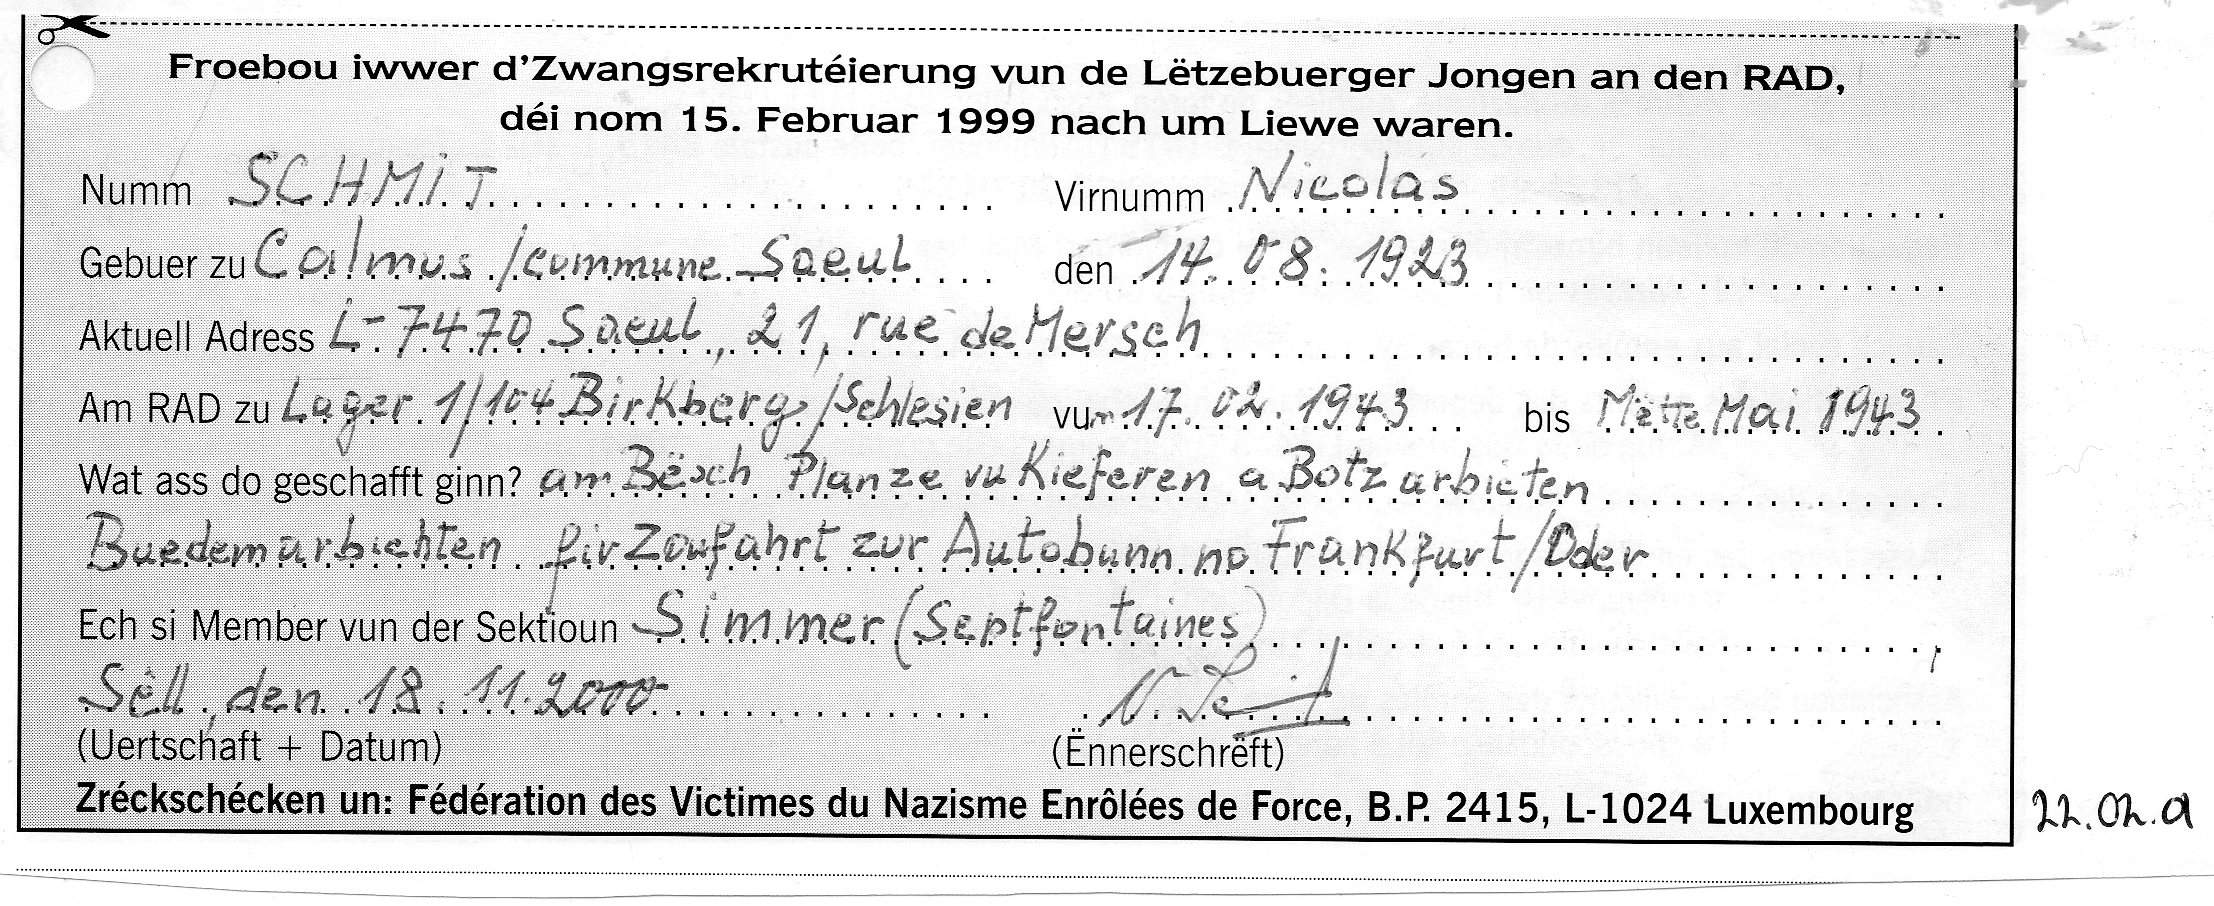 Froebou iwwer d'Zwangsrekrutéierung vun de Lëtzebuerger Jongen an den RAD,
déi nom 15. Februar 1999 nach um Liewe waren.
Numm SCHMIT Virnumm Nicolas
Gebuer zu Calmus /commune Saeul den 14. 08. 1923
Aktuell Adress L-7470 Saeul, 21, rue de Mersch
Am RAD zu Lager 1/104 Birkberg/Schlesien vum 17. 02. 1943 bis Mëtte Mai 1943
Wat ass do geschafft ginn? am Bësch Planze vu Kieferen a Botzarbieten
Buedemarbichten fir Zoufahrt zur Autobunn no Frankfurt/Oder
Ech si Member vun der Sektioun Simmer (Septfontaines)
Sëll, den 18. 11. 2000 N. Schmit
(Uertschaft + Datum) (Ënnerschrëft)
Zréckschécken un: Fédération des Victimes du Nazisme Enrôlées de Force, B.P. 2415, L-1024 Luxembourg
22.02.a